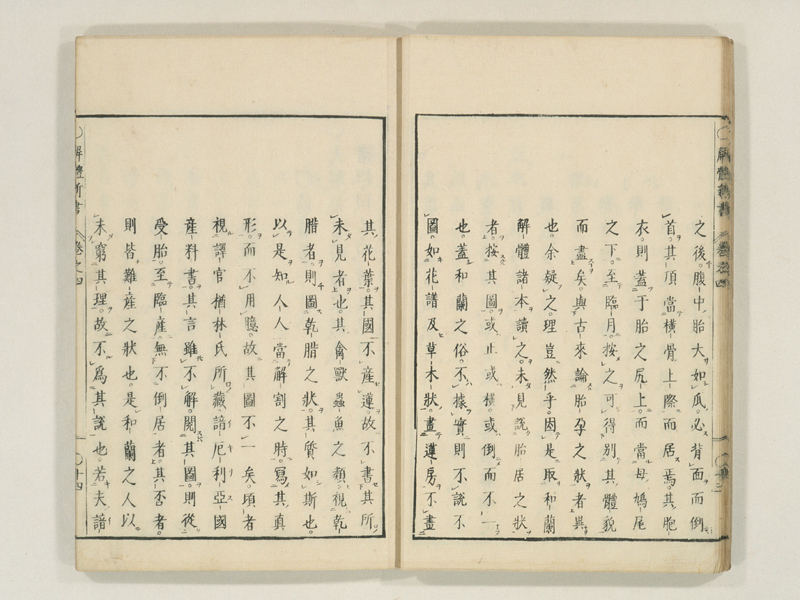 解體新書 卷之四
之後。腹中胎大如瓜。必背面而倒
首。其頂當橫骨上際而居焉。其胞
衣。則蓋于胎之尻上。而當母鳩尾
之下。至臨月。按之可得別其體貌
而盡矣。與古來論胎孕之狀者異
也。余疑之。理豈然乎。因是取和蘭
解體諸本讀之。未見說胎居之狀
者。按其圖。或止或橫或倒而不一
也。蓋和蘭之俗。不據實則不說不
圖。如花譜及草木狀。畫蓮房不畫
其花葉。其國不產蓮。故不書其所
未見者也。其禽獸蟲魚之類。視乾
腊者。則圖乾腊之狀。其質如斯也。
以是知人人當解割之時。寫其真
形。而不用臆。故其圖不一矣。頃者
視譯官楢林氏所藏諳厄利亞國
產科書。其言雖不解。閱其圖。則從
受胎。至臨產。無不倒居者。其否者。
則皆難產之狀也。是和蘭之人以
未窮其理。故不爲其說也。若夫諳
解體新書 卷之四
十四